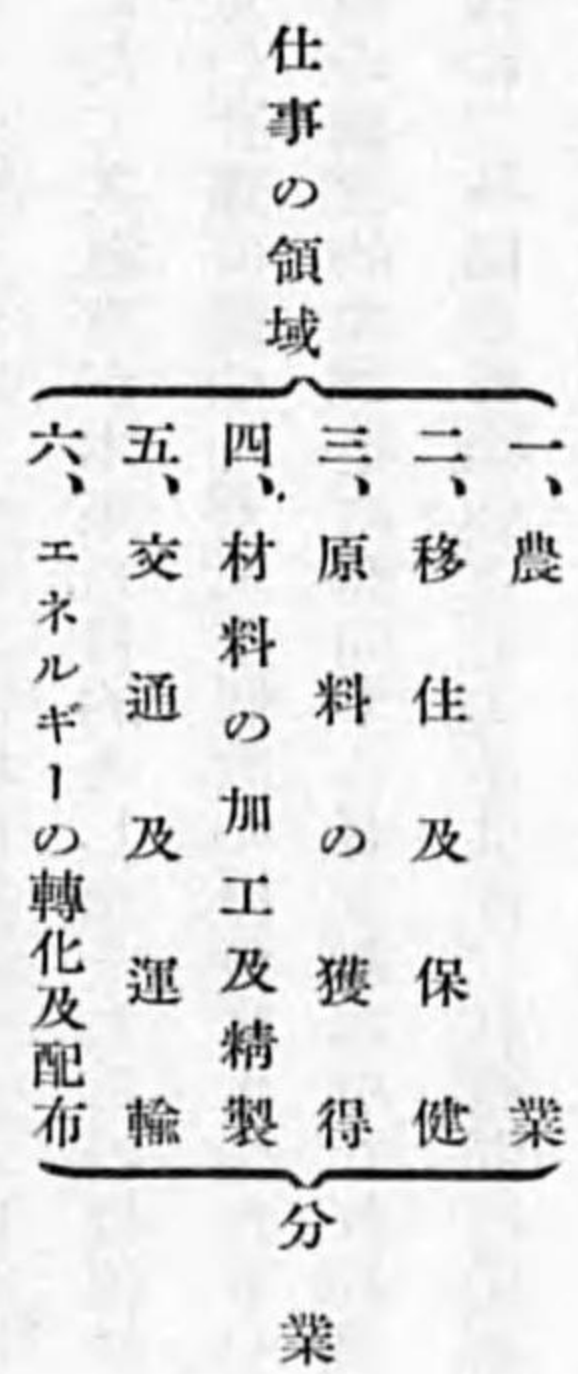 仕事の領域
一、農業
二、移住及保健
三、原料の獲得
四、材料の加工及精製
五、交通及運輸
六、エネルギーの轉化及配布
分業